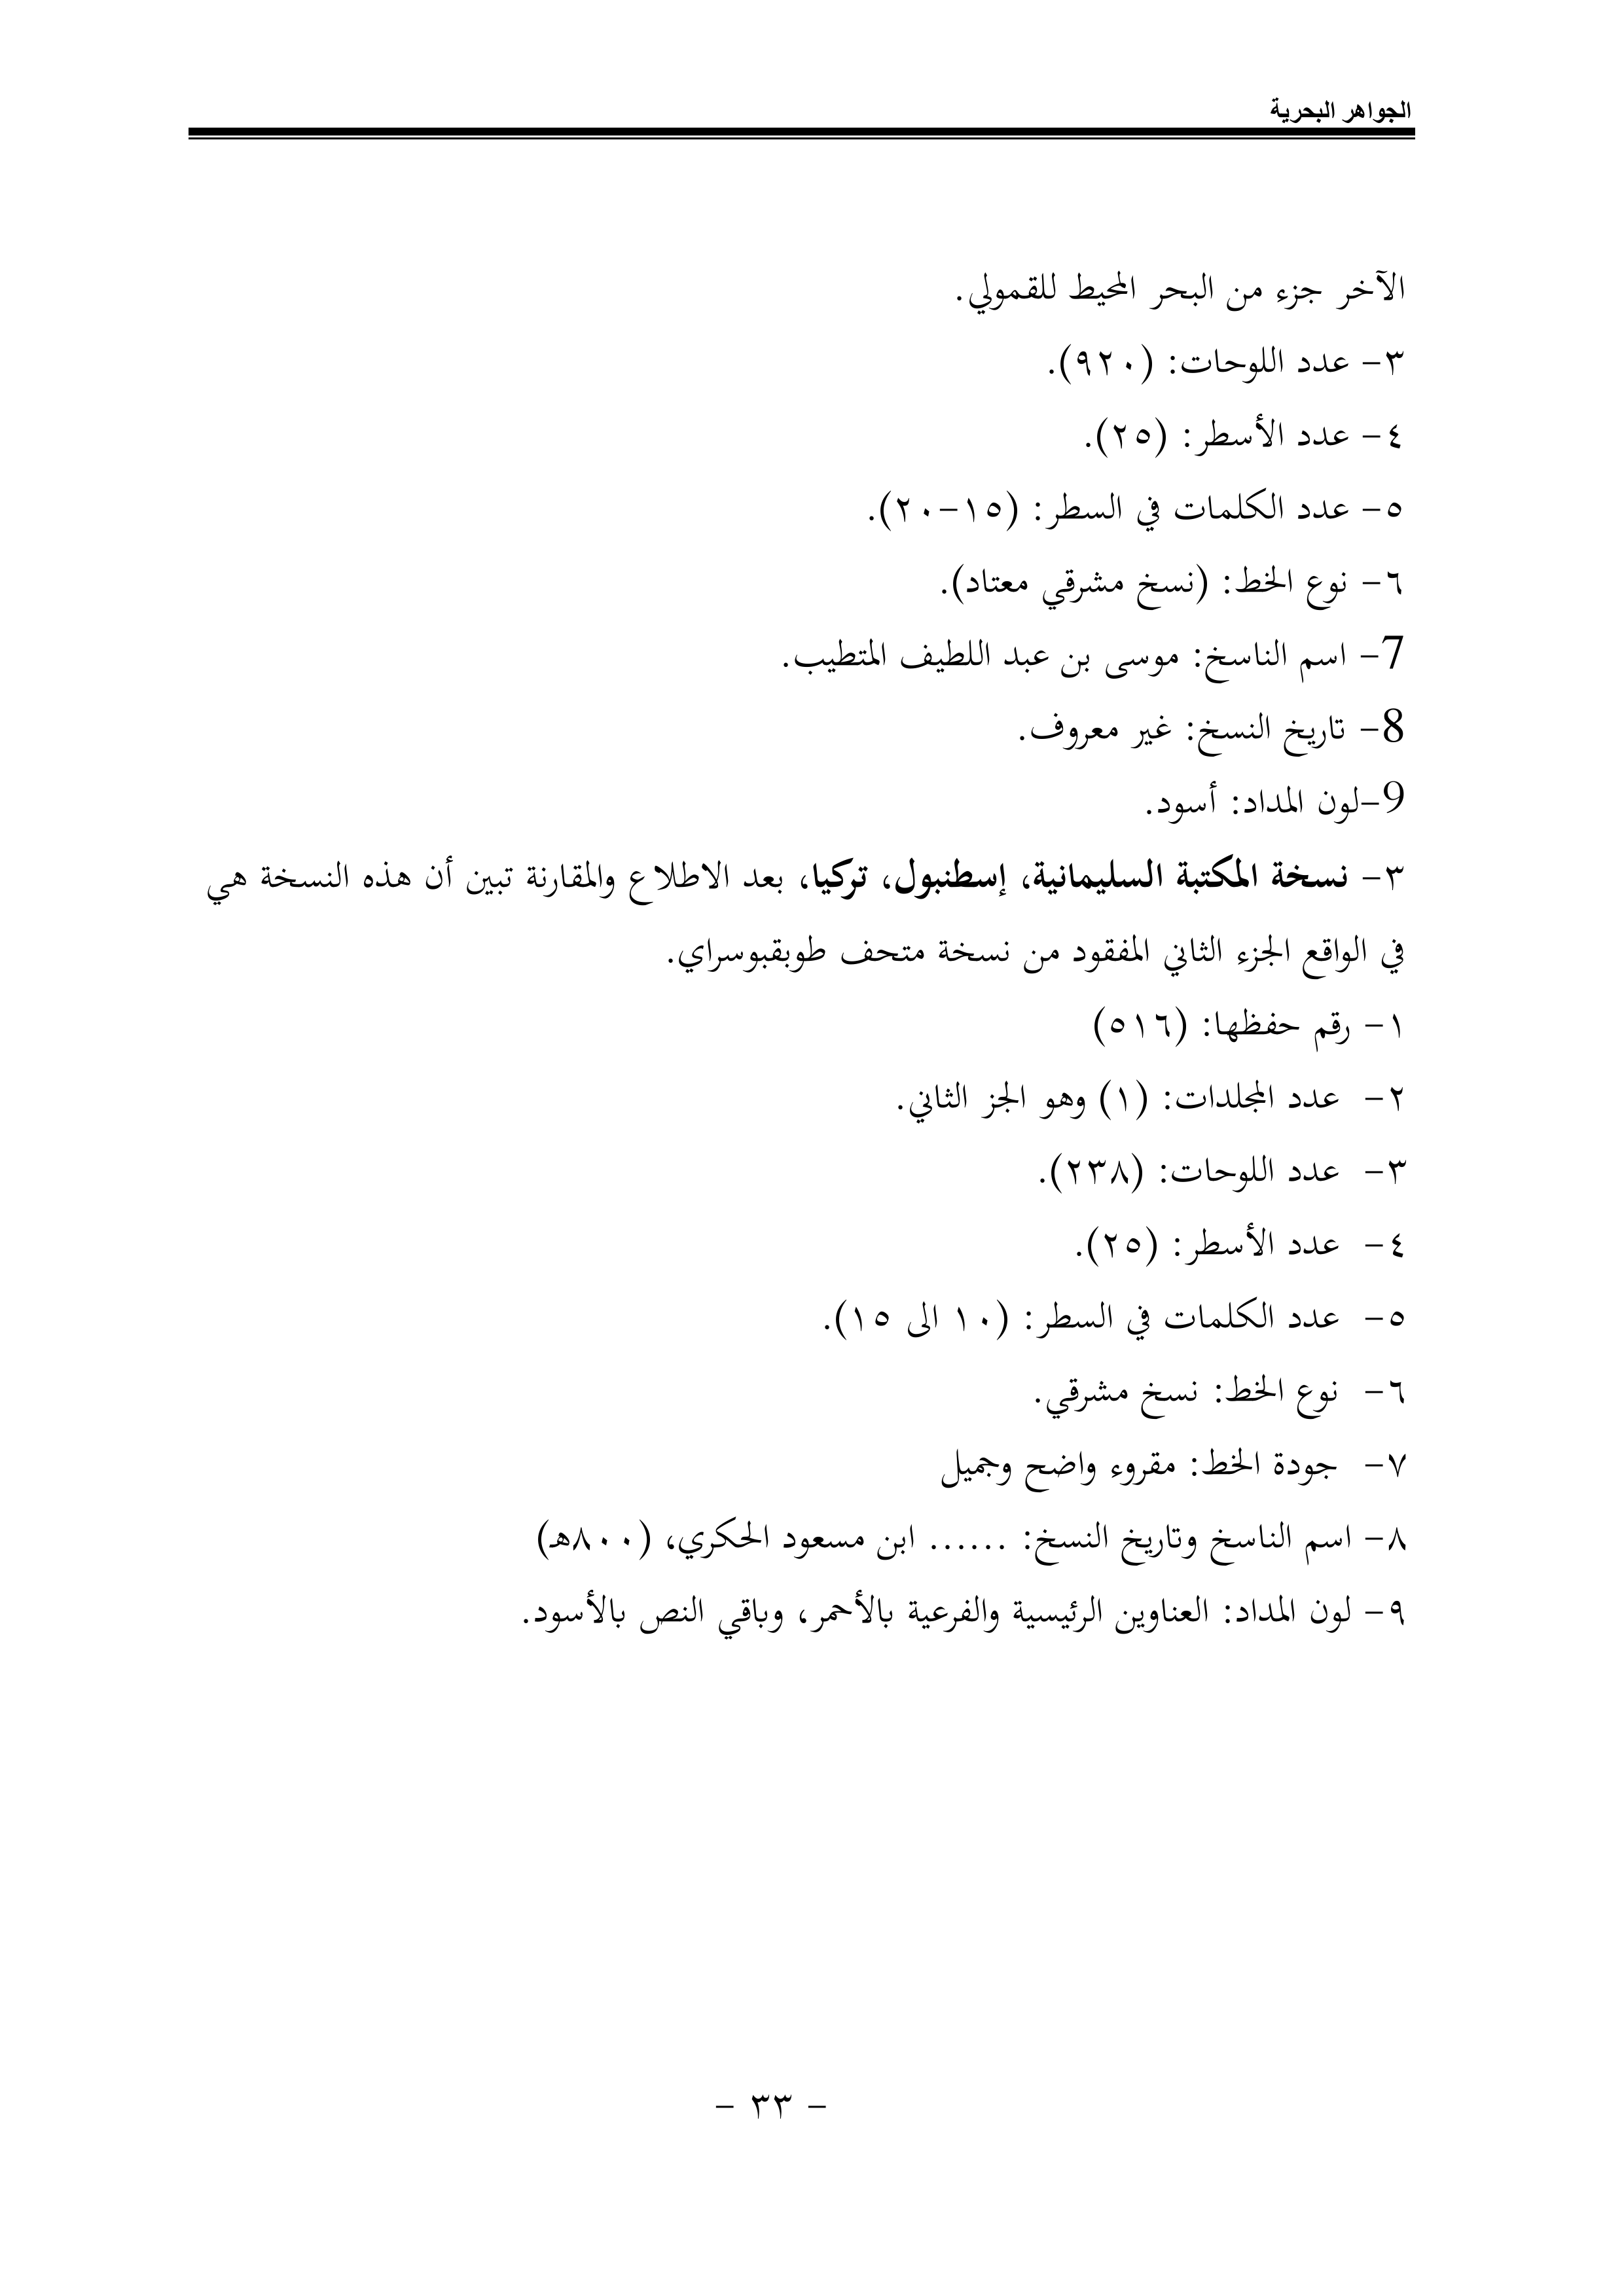 الجواهر البحرية
الآخر جزء من البحر المحيط للقمولي.
٣- عدد اللوحات: (٩٢٠).
٤- عدد الأسطر: (٢٥).
٥- عدد الكلمات في السطر: (١٥-٢٠).
٦- نوع الخط: (نسخ مشرقي معتاد).
7- اسم الناسخ: موسى بن عبد اللطيف المتطيب.
8- تاريخ النسخ: غير معروف.
9-لون المداد: أسود.
٣- نسخة المكتبة السليمانية، إسطنبول، تركيا، بعد الاطلاع والمقارنة تبين أن هذه النسخة هي
في الواقع الجزء الثاني المفقود من نسخة متحف طوبقبوسراي.
١- رقم حفظها: (٥١٦)
٢- عدد المجلدات: (١) وهو الجز الثاني.
٣- عدد اللوحات: (٢٣٨).
٤- عدد الأسطر: (٢٥).
٥- عدد الكلمات في السطر: (١٠ الى ١٥).
٦- نوع الخط: نسخ مشرقي.
٧- جودة الخط: مقروء واضح وجميل
٨- اسم الناسخ وتاريخ النسخ: ...... ابن مسعود الحكري، (٨٠٠هـ)
٩- لون المداد: العناوين الرئيسية والفرعية بالأحمر، وباقي النص بالأسود.
- ٣٣ -